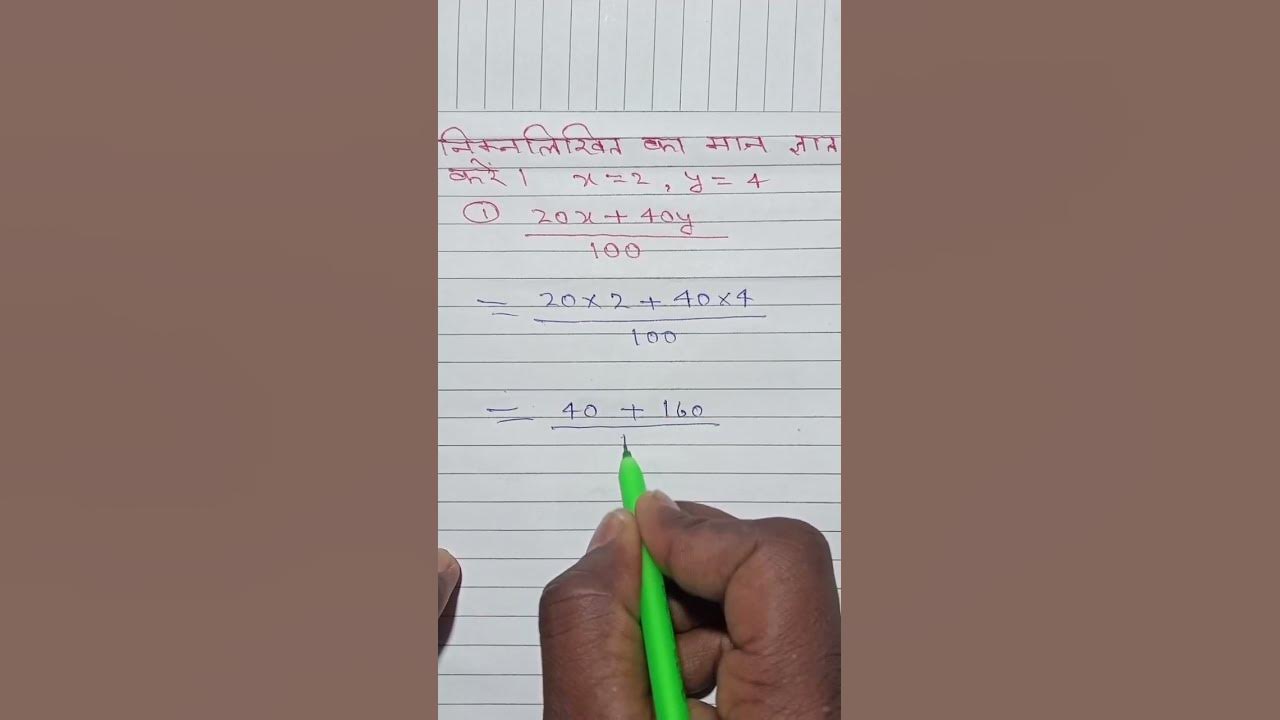 निम्नलिखित का मान ज्ञात
करें। x=2, y=4
① 20x+40y
100
= 20×2+40×4
100
= 40 + 160
1